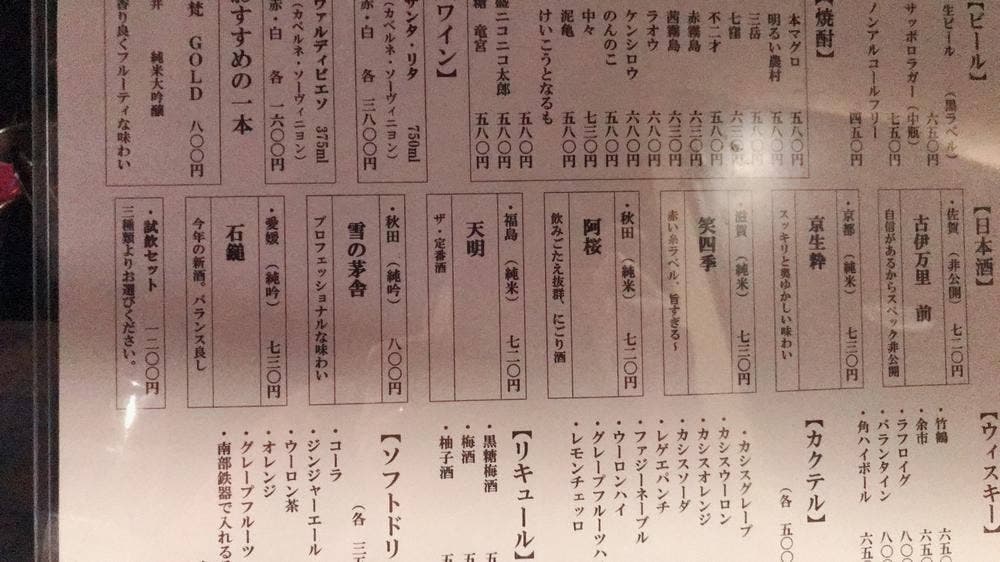 【ビール】
生ビール （黒ラベル）
六五〇円
サッポロラガー（中瓶）
七五〇円
ノンアルコールフリー
四五〇円
【焼酎】
本マグロ 五八〇円
明るい農村
三岳 五八〇円
七窪
不二才 五八〇円
赤霧島 六三〇円
茜霧島 六三〇円
ラオウ 六八〇円
ケンシロウ 六八〇円
のんのこ 五八〇円
中々 七三〇円
泥亀 五八〇円
けいこうとなるも
ニコニコ太郎 五八〇円
竜宮 五八〇円
ワイン】
サンタ・リタ 750ml
（カベルネ・ソーヴィニヨン）
赤・白 各 三八〇〇円
ヴァルディビエソ 375ml
（カベルネ・ソーヴィニヨン）
赤・白 各 一六〇〇円
おすすめの一本
梵 GOLD 八〇〇円
井 純米大吟醸
香り良くフルーティな味わい
【日本酒】
・佐賀 （非公開） 七二〇円
古伊万里 前
自信があるからスペック非公開
・京都 （純米） 七三〇円
京生粋
スッキリと奥ゆかしい味わい
・滋賀 （純米） 七三〇円
笑四季
赤い糸ラベル、旨すぎる～
・秋田 （純米） 七二〇円
阿桜
飲みごたえ抜群、にごり酒
・福島 （純米） 七二〇円
天明
ザ・定番酒
・秋田 （純吟） 八〇〇円
雪の茅舎
プロフェッショナルな味わい
・愛媛 （純吟） 七三〇円
石鎚
今年の新酒。バランス良し
・試飲セット 一二〇〇円
三種類よりお選びください。
【ウィスキー】
・竹鶴 六五
・余市 六五
・ラフロイグ 八〇
・バランタイン 八〇
・角ハイボール 六五
【カクテル】
（各 五〇〇
・カシスグレープ
・カシスウーロン
・カシスオレンジ
・カシスソーダ
・レゲエパンチ
・ファジーネーブル
・ウーロンハイ
・グレープフルーツハ
・レモンチェッロ
【リキュール】
・黒糖梅酒 五
・梅酒 五
・柚子酒 五
【ソフトドリ
（各 三五
・コーラ
・ジンジャーエール
・ウーロン茶
・オレンジ
・グレープフルーツ
・南部鉄器で入れる